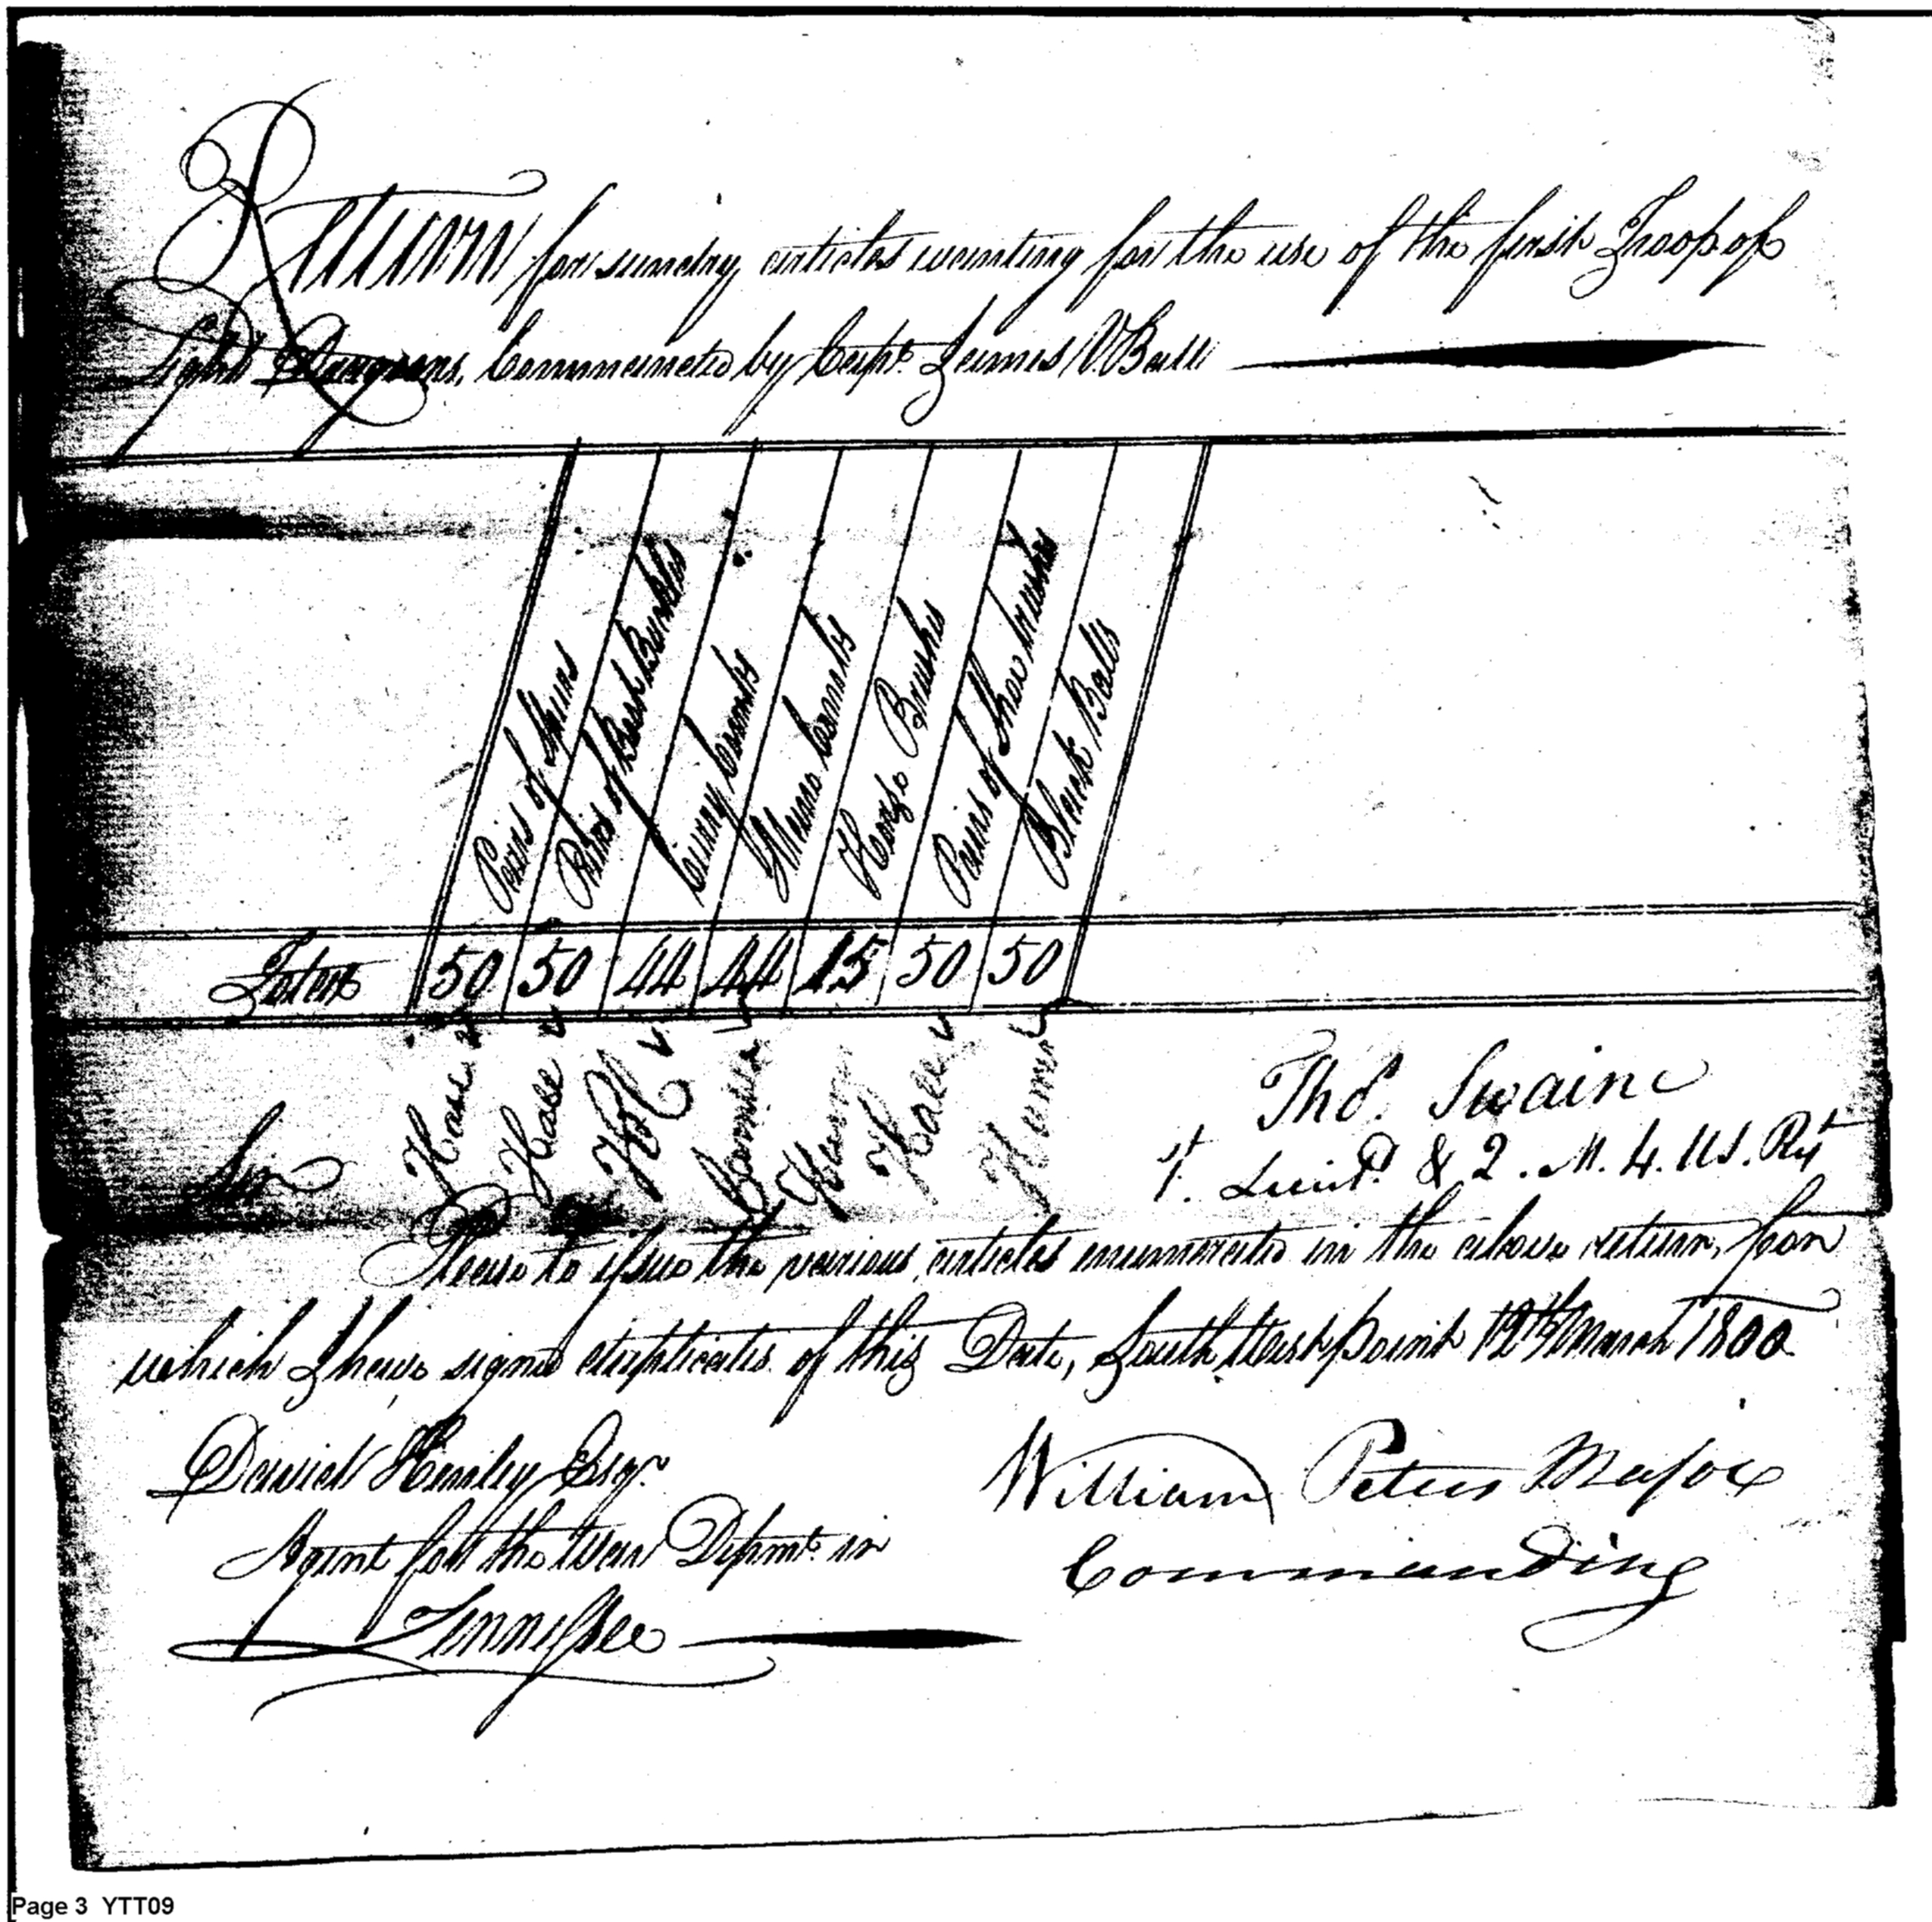 Return for sundry articles wanting for the use of the first Troop of
Light Dragoons, Commanded by Capt. James V. Ball
Pairs of Spurs
Pairs of Boot Buckles
Curry Combs
Mane Combs
Horse Brushes
Pairs of Shoe brushes
Black Balls
Total 50 50 44 44 15 50 50
Thos. Swaine
1t. Lieut. & Q. M. 4. US. Rgt
Sir
Please to issue the various articles enumerated in the above return, for
which I have signed duplicates of this Date, South West point 12th March 1800
David Henley Esqr.
William Peters Major
Agent for the War Depmt. in
Commanding
Tennessee
Page 3 YTT09